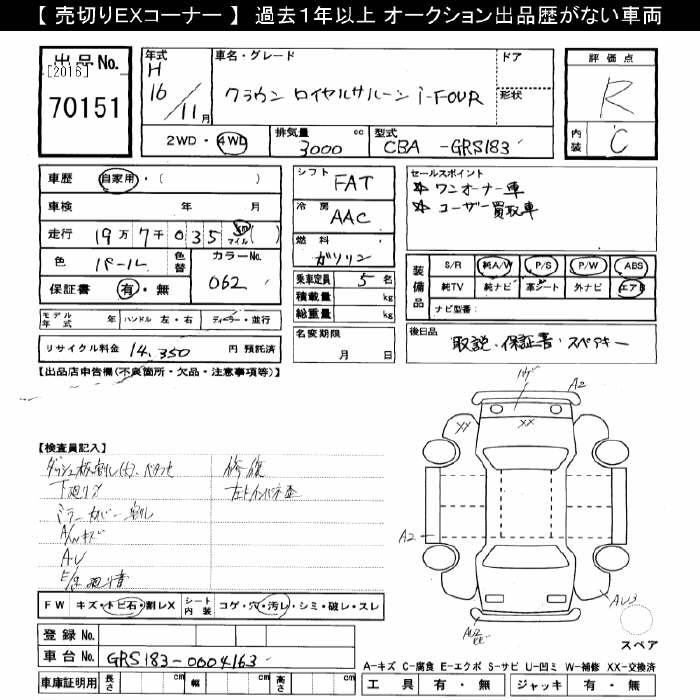 【 売切りEXコーナー 】 過去1年以上 オークション出品歴がない車両
出品No.
[2016]
70151
年式
H
16/11月
車名・グレード
クラウン ロイヤルサルーン i-FOUR
ドア
形状
評価点
R
内装
C
2WD・4WD
排気量
3000
cc
型式
CBA -GRS183
車歴
自家用・( )
車検
年 月
走行
19万7千035
km
マイル
( )
色
パール
色替
カラーNo.
062
保証書
有・無
モデル年式
年
ハンドル
左・右
ディーラー・並行
リサイクル料金 14,350 円 預託済
シフト
FAT
冷房
AAC
燃料
ガソリン
乗車定員
5名
積載量
kg
総重量
kg
名変期限
月 日
セールスポイント
☆ ワンオーナー車
☆ ユーザー買取車
装備品
S/R 純A/W P/S P/W ABS
純TV 純ナビ 革シート 外ナビ エアB
ナビ型番:
後日品
取説・保証書・スペアキー
【出品店申告欄(不良箇所・欠品・注意事項等)】
【検査員記入】
下廻りサビ
ミラーカバー
A/Wキズ
AU
修復
A2
XX
XX
A2
AU3
スペア
FW
キズ・トビ石・割レX
シート内装
コゲ・穴・汚レ・シミ・破レ・スレ
登録No.
車台No.
GRS183-0004163
車庫証明用
長さ
cm
幅
cm
高さ
cm
A-キズ C-腐食 E-エクボ S-サビ U-凹ミ W-補修 XX-交換済
工具 有・無 ジャッキ 有・無